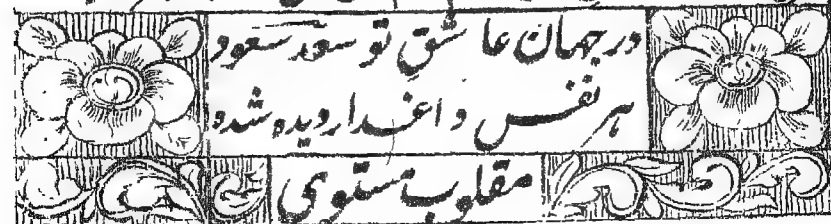 در جهان عاشق تو سعد سعود
هر نفس و اغدار دیده شده
مقلوب مستوی